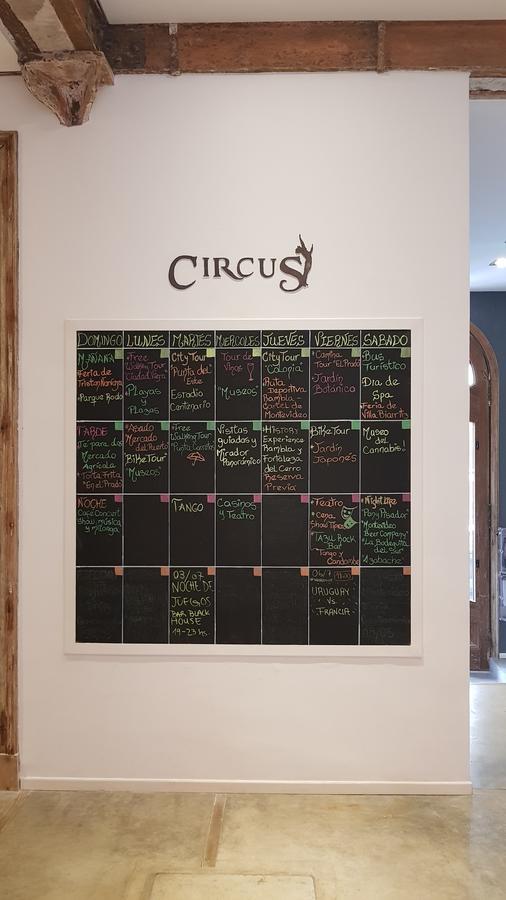 CIRCUS
DOMINGO LUNES MARTES MIERCOLES JUEVES VIERNES SABADO
MAÑANA
Feria de
Tristan Narvaja
•Parque Rodó
•Free
Walking Tour
Ciudad Vieja
•Playas
y
Plazas
City Tour
"Punta del
Este
Estadio
Centenario
Tour de
Vinos
"Museos"
City Tour
"Colonia"
•Ruta
Deportiva
Rambla-
Cartel de
Montevideo
"Camina
Tour "El Prado
•Jardín
Botanico
Bus
Turístico
Día de
Spa
•Feria de
Villa Biarritz
TARDE
Té para dos
Mercado
Agrícola
"Torta Frita
"En el Prado"
•Asado
Mercado
del Puerto
"BikeTour"
"Museos"
•Free
Walking Tour
Punta Carretas
Visitas
guiadas y
Mirador
Panorámico
•History
Experience
Rambla y
Fortaleza
del Cerro
Reserva
Previa
BikeTour
•Jardín
Japonés
Museo
del
Cannabis
NOCHE
Café Concert
Show, música
y Milonga
TANGO
Casinos
y Teatro
•Teatro
•Cena
Show
Rock
Bar
Tango y
Candombe
•Nightlife
"Pony Pisador"
"Montevideo
Beer Company"
"La Bodeguita
del Sur"
Azabache"
03/07
NOCHE DE
JUEGOS
BAR BLACK
HOUSE
19-23 hs.
URUGUAY
VS
FRANCIA